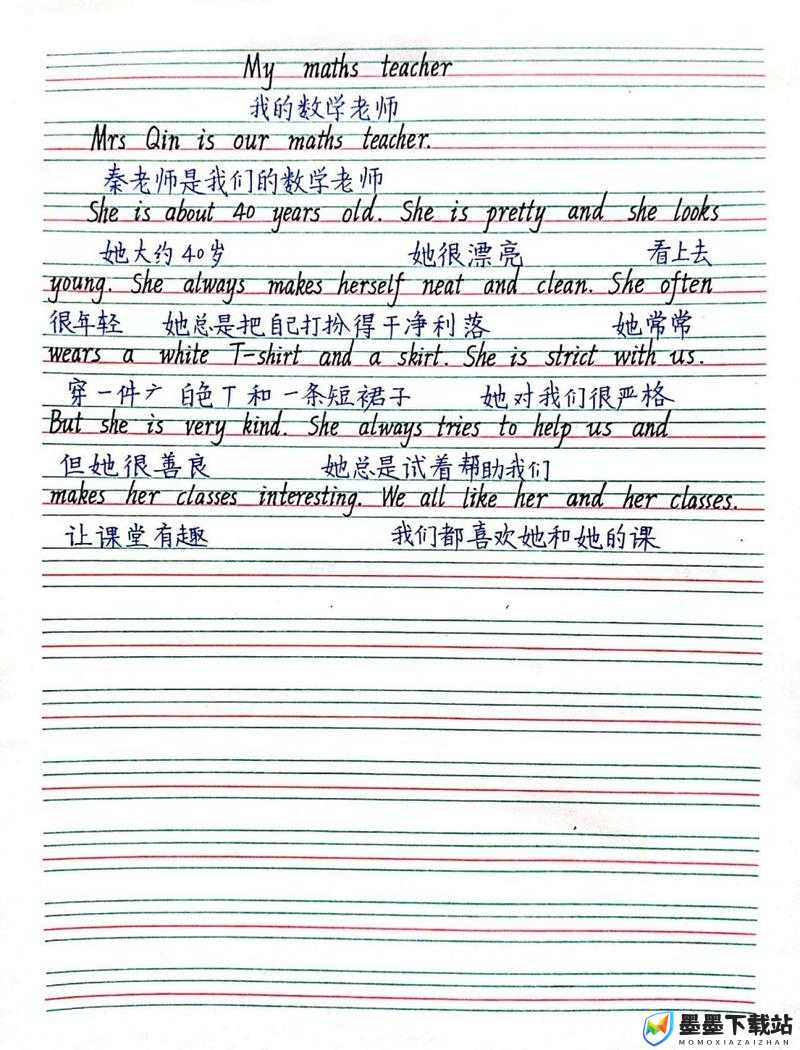 My maths teacher
我的数学老师
Mrs Qin is our maths teacher.
秦老师是我们的数学老师
She is about 40 years old. She is pretty and she looks
她大约40岁 她很漂亮 看上去
young. She always makes herself neat and clean. She often
很年轻 她总是把自己打扮得干净利落 她常常
wears a white T-shirt and a skirt. She is strict with us.
穿一件 白色T和一条短裙子 她对我们很严格
But she is very kind. She always tries to help us and
但她很善良 她总是试着帮助我们
makes her classes interesting. We all like her and her classes.
让课堂有趣 我们都喜欢她和她的课
墨墨下载站
MOMOXIAZAIZHAN